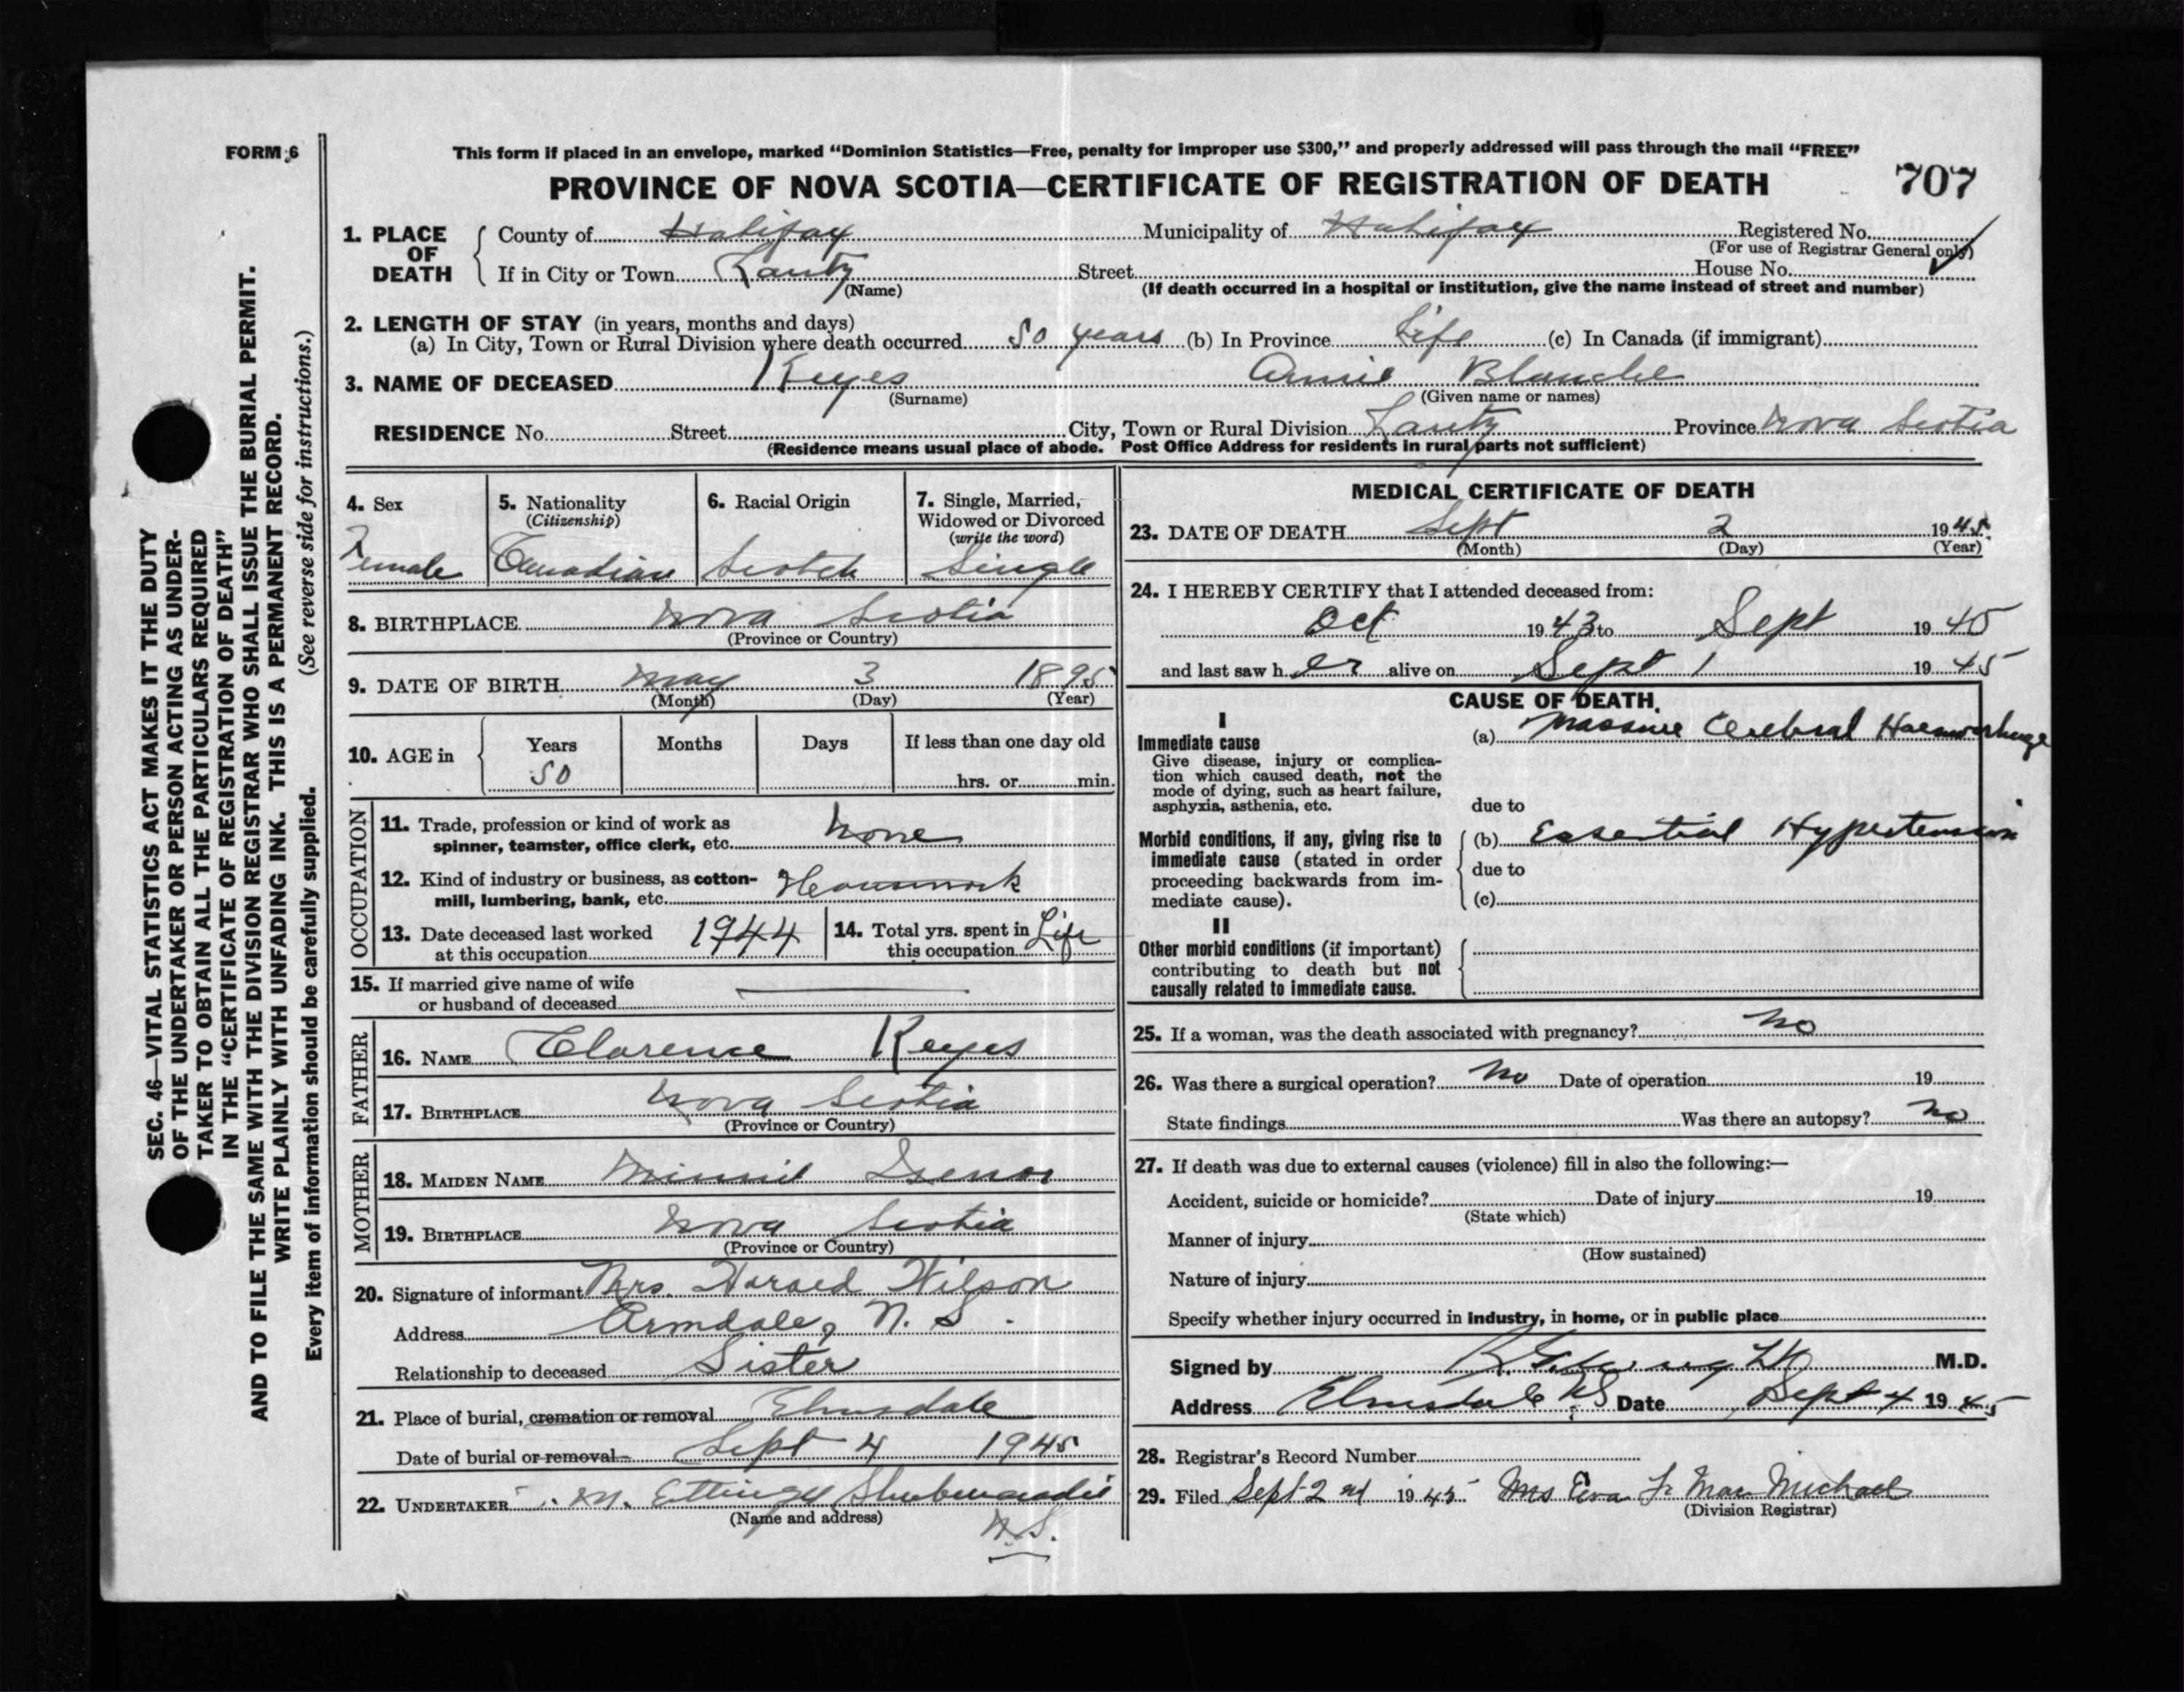 FORM 6
This form if placed in an envelope, marked “Dominion Statistics—Free, penalty for improper use $300,” and properly addressed will pass through the mail “FREE”
PROVINCE OF NOVA SCOTIA—CERTIFICATE OF REGISTRATION OF DEATH 707
SEC. 46—VITAL STATISTICS ACT MAKES IT THE DUTY
OF THE UNDERTAKER OR PERSON ACTING AS UNDER-
TAKER TO OBTAIN ALL THE PARTICULARS REQUIRED
IN THE “CERTIFICATE OF REGISTRATION OF DEATH”
AND TO FILE THE SAME WITH THE DIVISION REGISTRAR WHO SHALL ISSUE THE BURIAL PERMIT.
WRITE PLAINLY WITH UNFADING INK. THIS IS A PERMANENT RECORD.
Every item of information should be carefully supplied. (See reverse side for instructions.)
1. PLACE OF DEATH
County of Halifax Municipality of Halifax Registered No.
(For use of Registrar General only)
If in City or Town Lantz Street House No.
(Name) (If death occurred in a hospital or institution, give the name instead of street and number)
2. LENGTH OF STAY (in years, months and days)
(a) In City, Town or Rural Division where death occurred 50 years (b) In Province Life (c) In Canada (if immigrant)
3. NAME OF DECEASED Keyes Annie Blanche
(Surname) (Given name or names)
RESIDENCE No. Street City, Town or Rural Division Lantz Province Nova Scotia
(Residence means usual place of abode. Post Office Address for residents in rural parts not sufficient)
4. Sex
Female
5. Nationality
(Citizenship)
Canadian
6. Racial Origin
Scotch
7. Single, Married,
Widowed or Divorced
(write the word)
Single
8. BIRTHPLACE Nova Scotia
(Province or Country)
9. DATE OF BIRTH May 3 1895
(Month) (Day) (Year)
10. AGE in Years Months Days If less than one day old
50 hrs. or min.
OCCUPATION
11. Trade, profession or kind of work as
spinner, teamster, office clerk, etc. None
12. Kind of industry or business, as cotton-
mill, lumbering, bank, etc. Housework
13. Date deceased last worked
at this occupation 1944
14. Total yrs. spent in
this occupation Life
15. If married give name of wife
or husband of deceased
FATHER
16. NAME Clarence Keyes
17. BIRTHPLACE Nova Scotia
(Province or Country)
MOTHER
18. MAIDEN NAME Minnie
19. BIRTHPLACE Nova Scotia
(Province or Country)
20. Signature of informant Mrs. Harold Wilson
Address Armdale, N. S.
Relationship to deceased Sister
21. Place of burial, cremation or removal Elmsdale
Date of burial or removal Sept 4 1945
22. UNDERTAKER M. Ettinger Shubenacadie
(Name and address) N.S.
MEDICAL CERTIFICATE OF DEATH
23. DATE OF DEATH Sept 2 1945
(Month) (Day) (Year)
24. I HEREBY CERTIFY that I attended deceased from:
Oct 1943 to Sept 1945
and last saw her alive on Sept 1 1945
CAUSE OF DEATH
I
Immediate cause
Give disease, injury or complica-
tion which caused death, not the
mode of dying, such as heart failure,
asphyxia, asthenia, etc.
(a) Massive Cerebral Haemorrhage
due to
Morbid conditions, if any, giving rise to
immediate cause (stated in order
proceeding backwards from im-
mediate cause).
(b) Essential Hypertension
due to
(c)
II
Other morbid conditions (if important)
contributing to death but not
causally related to immediate cause.
25. If a woman, was the death associated with pregnancy? No
26. Was there a surgical operation? No Date of operation 19
State findings Was there an autopsy? No
27. If death was due to external causes (violence) fill in also the following:—
Accident, suicide or homicide? Date of injury 19
(State which)
Manner of injury
(How sustained)
Nature of injury
Specify whether injury occurred in industry, in home, or in public place
Signed by M.D.
Address Elmsdale NS Date Sept 4 1945
28. Registrar's Record Number
29. Filed Sept 2nd 1945 Mrs Eva MacMichael
(Division Registrar)